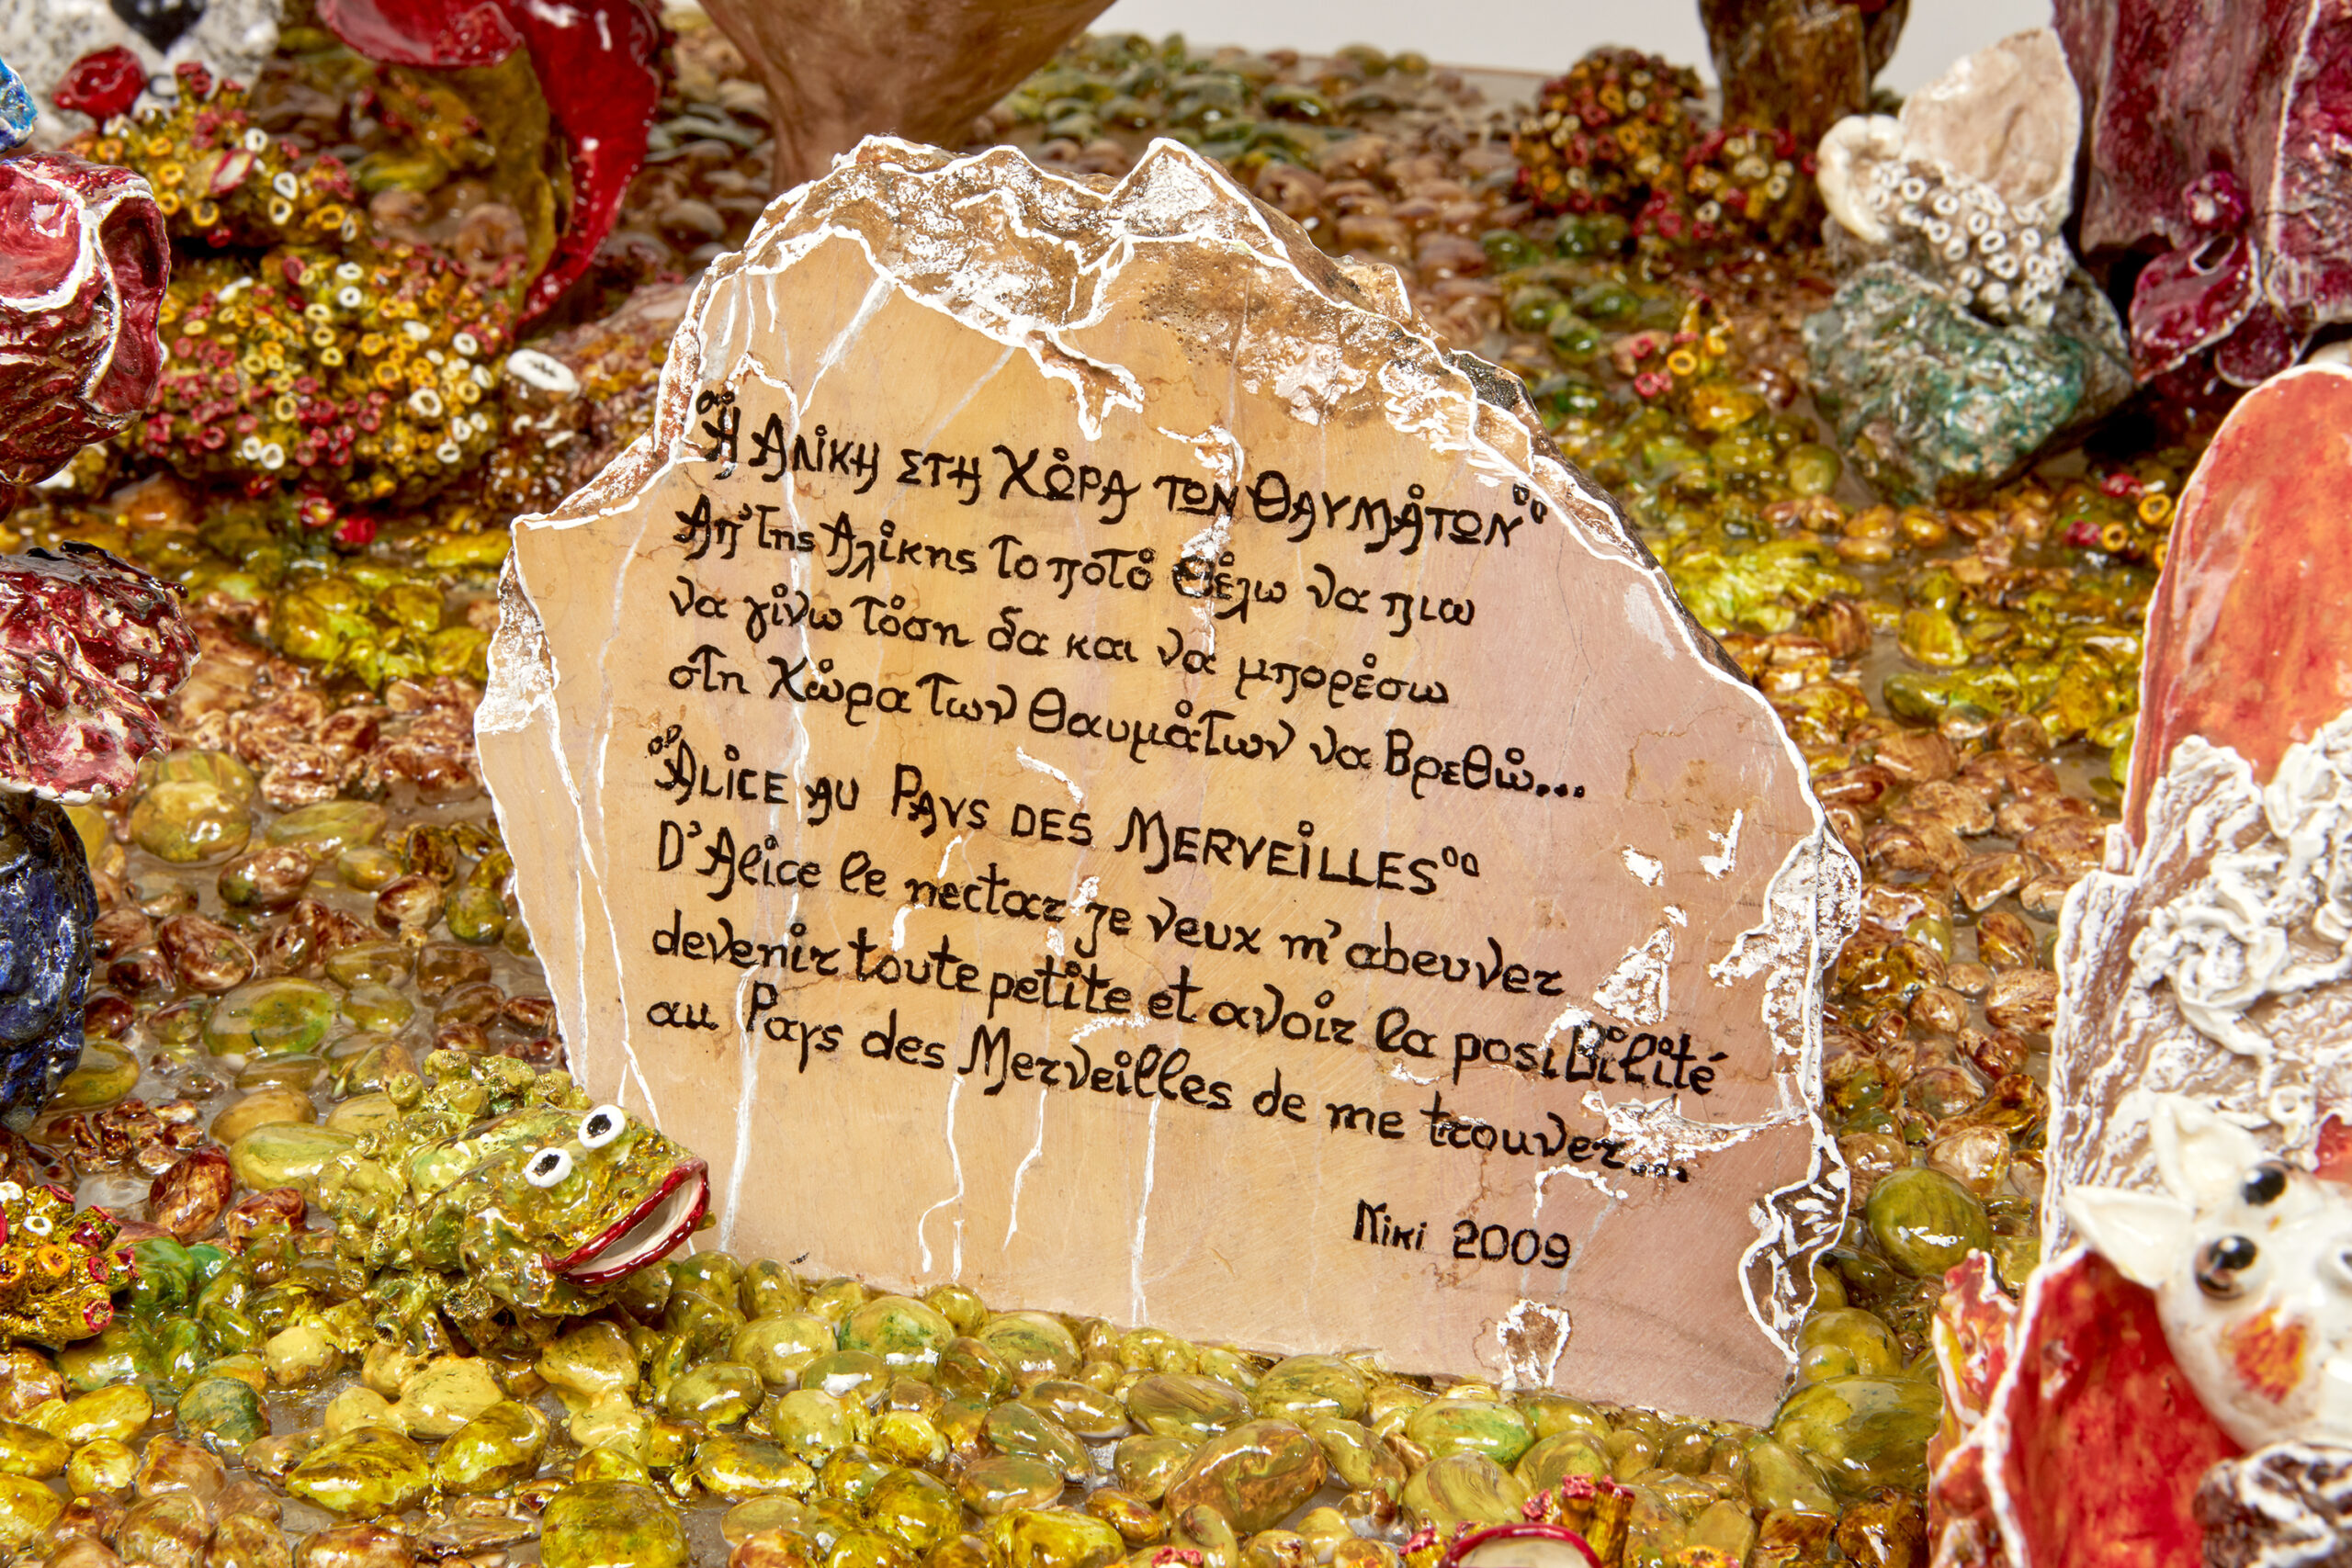 "Η Αλίκη στη Χώρα των Θαυμάτων"
Απ' της Αλίκης το ποτό θέλω να πιω
να γίνω τόση δα και να μπορέσω
στη Χώρα των Θαυμάτων να Βρεθώ...
"Alice au Pays des Merveilles"
D'Alice le nectar je veux m'abeuver
devenir toute petite et avoir la posibilité
au Pays des Merveilles de me trouver...
Niki 2009